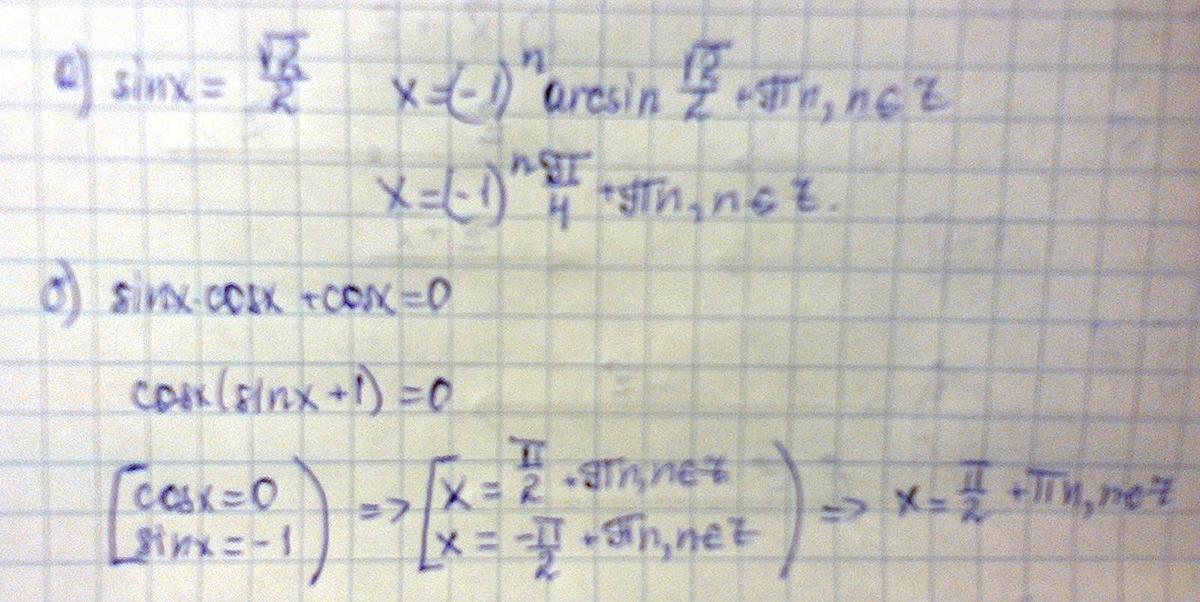 а) sinx = √2/2 x = (-1)^n arcsin √2/2 + πn, n ∈ Z
x = (-1)^n π/4 + πn, n ∈ Z.
б) sinx·cosx + cosx = 0
cosx(sinx + 1) = 0
[cosx = 0 ) => [x = π/2 + πn, n ∈ Z ) => x = π/2 + πn, n ∈ Z
[sinx = -1 ) [x = -π/2 + πn, n ∈ Z )